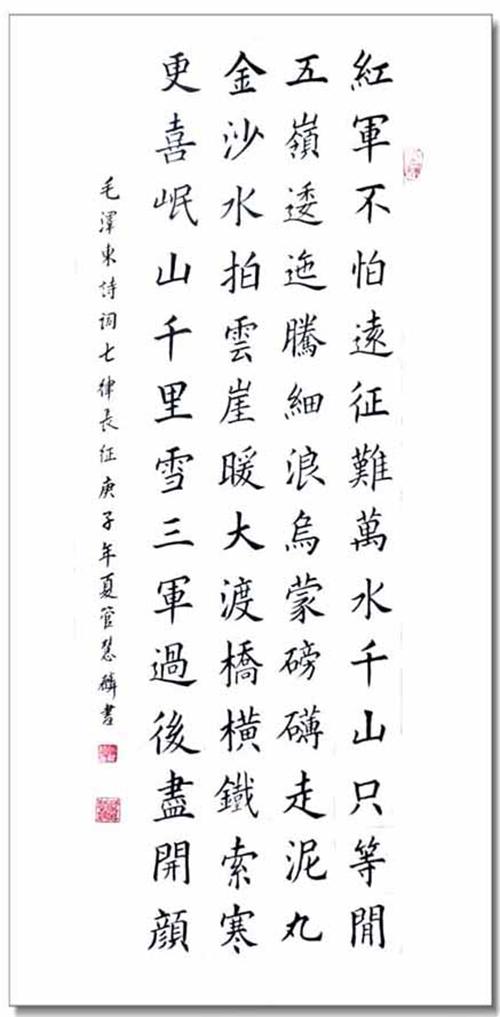 紅軍不怕遠征難萬水千山只等閒
五嶺逶迤騰細浪烏蒙磅礴走泥丸
金沙水拍雲崖暖大渡橋橫鐵索寒
更喜岷山千里雪三軍過後盡開顔
毛澤東詩詞七律長征庚子年夏管慧麟書